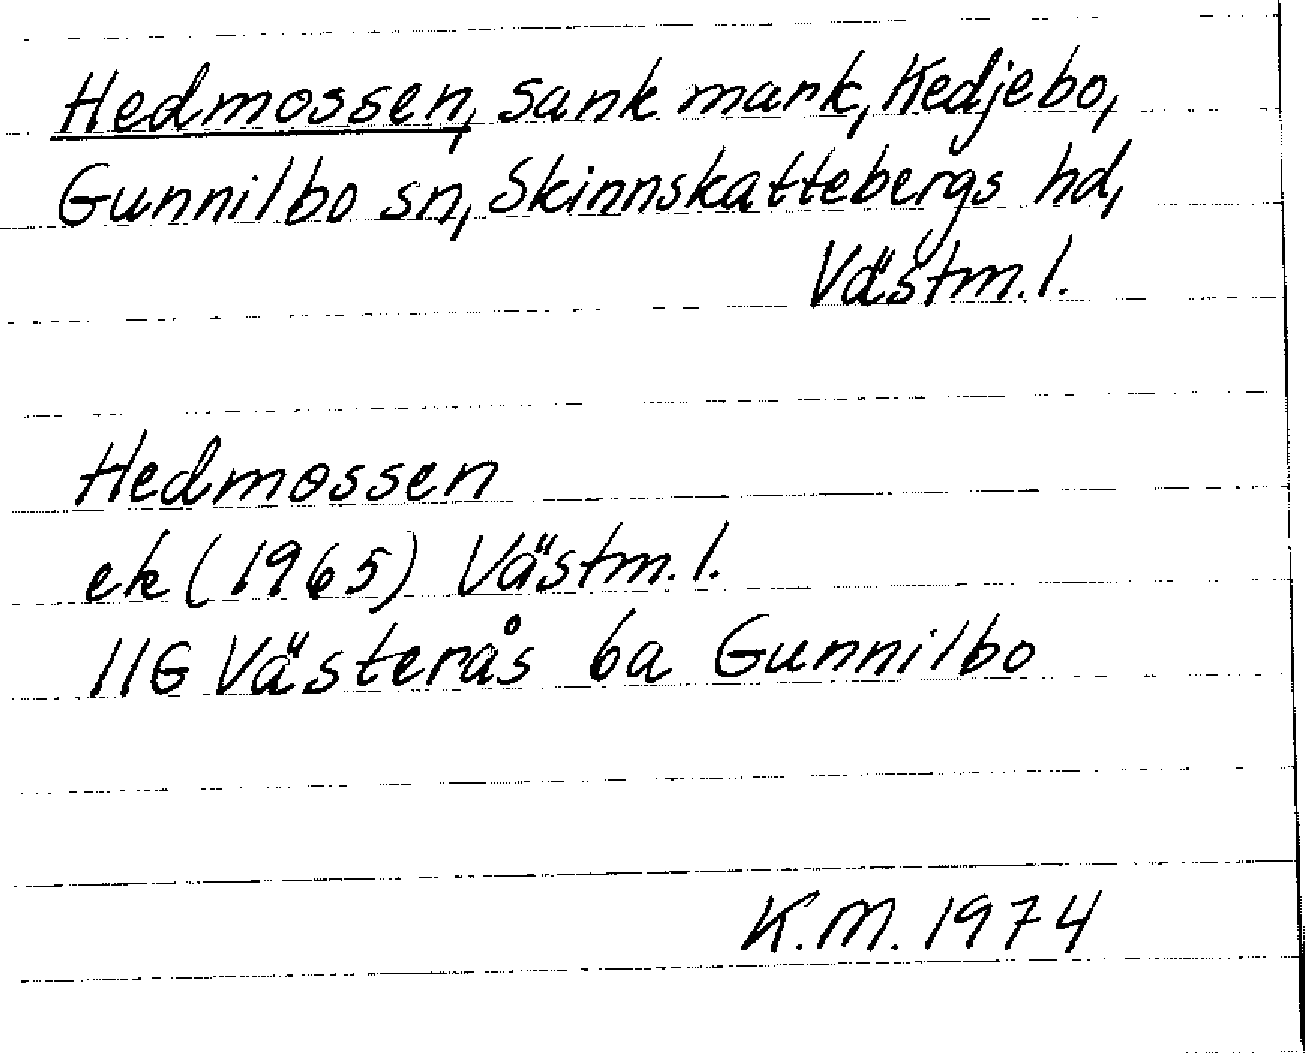 Hedmossen, sank mark, Kedjebo,
Gunnilbo sn, Skinnskattebergs hd,
Västm.l.
Hedmossen
ek (1965) Västm.l.
11G Västerås 6a Gunnilbo
K.M. 1974